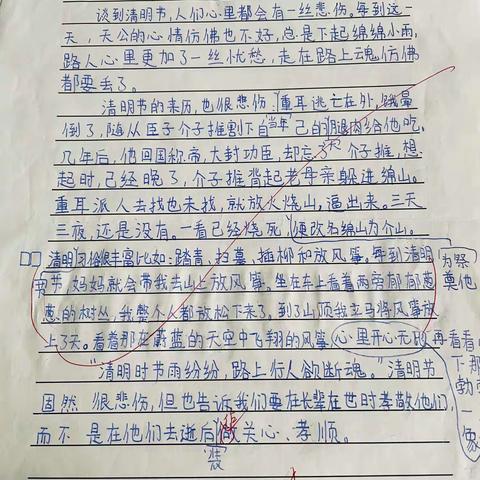 谈到清明节,人们心里都会有一丝悲伤。每到这一
天,天公的心情仿佛也不好,总是下起绵绵小雨,
路人心里更加了一丝忧愁,走在路上魂仿佛
都要丢了。
清明节的来历,也很悲伤:重耳逃亡在外,饿晕
倒了,随从臣子介子推割下自己的腿肉给他吃。
当年
几年后,他回国称帝,大封功臣,却忘了介子推,想
起时,已经晚了,介子推背起老母亲躲进绵山。
重耳派人去找也未找,就放火烧山,逼出来。三天
三夜,还是没有。一看已经烧死,便改名绵山为介山。
清明习俗很丰富比如:踏青、扫墓、插柳和放风筝。每到清明
为祭
奠他
节,妈妈就会带我去山上放风筝。坐在车上看着两旁郁郁葱
葱的树丛,我整个人都放松下来了。到了山顶我立马将风筝放
上了天。看着那在蔚蓝的天空中飞翔的风筝,心里开心无比,再看看
下那
勃
一
像
“清明时节雨纷纷,路上行人欲断魂。”清明节
固然很悲伤,但也告诉我们要在长辈在世时孝敬他们,
而不是在他们去逝后做关心、孝顺。
装